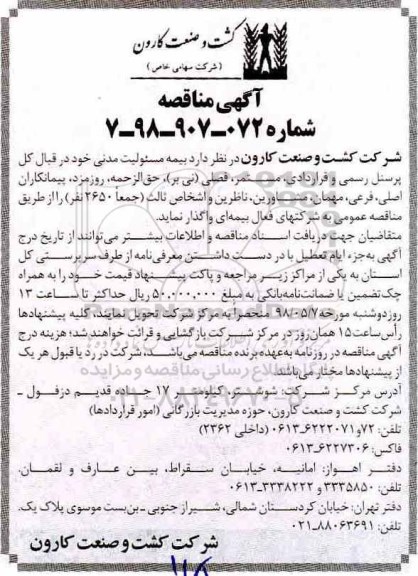 کشت و صنعت کارون
( شرکت سهامی خاص )
آگهی مناقصه
شماره ۰۷۲-۹۰۷-۹۸-۷
شرکت کشت و صنعت کارون در نظر دارد بیمه مسئولیت مدنی خود در قبال کل
پرسنل رسمی و قراردادی، مستمر، فصلی (نی بر)، حق‌الزحمه، روزمزد، پیمانکاران
اصلی، فرعی، مهمان، مشاورین، ناظرین و اشخاص ثالث (جمعاً ۲۶۵۰ نفر) را از طریق
مناقصه عمومی به شرکتهای فعال بیمه‌ای واگذار نماید.
متقاضیان جهت دریافت اسناد مناقصه و اطلاعات بیشتر می‌توانند از تاریخ درج
آگهی به‌جزء ایام تعطیل با در دست داشتن معرفی‌نامه از طرف سرپرستی کل
استان به یکی از مراکز زیر مراجعه و پاکت پیشنهاد قیمت خود را به همراه
چک تضمین یا ضمانت‌نامه بانکی به مبلغ ۵۰۰،۰۰۰،۰۰۰ ریال حداکثر تا ساعت ۱۳
روز دوشنبه مورخه ۹۸/۰۵/۷ منحصراً به مرکز شرکت تحویل نمایند. کلیه پیشنهادها
رأس ساعت ۱۵ همان روز در مرکز شرکت بازگشایی و قرائت خواهند شد؛ هزینه درج
آگهی مناقصه در روزنامه به عهده برنده مناقصه می‌باشد، شرکت در رد یا قبول هر یک
از پیشنهادها مختار می‌باشد.
آدرس مرکز شرکت: شوشتر - کیلومتر ۱۷ جاده قدیم دزفول -
شرکت کشت و صنعت کارون، حوزه مدیریت بازرگانی (امور قراردادها)
تلفن: ۷۲ و ۰۶۱۳-۶۲۲۲۰۷۱ (داخلی ۲۳۶۲)
فاکس: ۰۶۱۳-۶۲۲۷۳۰۶
دفتر اهواز: امانیه، خیابان سقراط، بین عارف و لقمان.
تلفن: ۳۳۳۵۸۵۰ و ۰۶۱۳-۳۳۳۸۲۲۲
دفتر تهران: خیابان کردستان شمالی، شیراز جنوبی - بن‌بست موسوی پلاک یک.
تلفن: ۰۲۱-۸۸۰۶۳۶۹۱
شرکت کشت و صنعت کارون